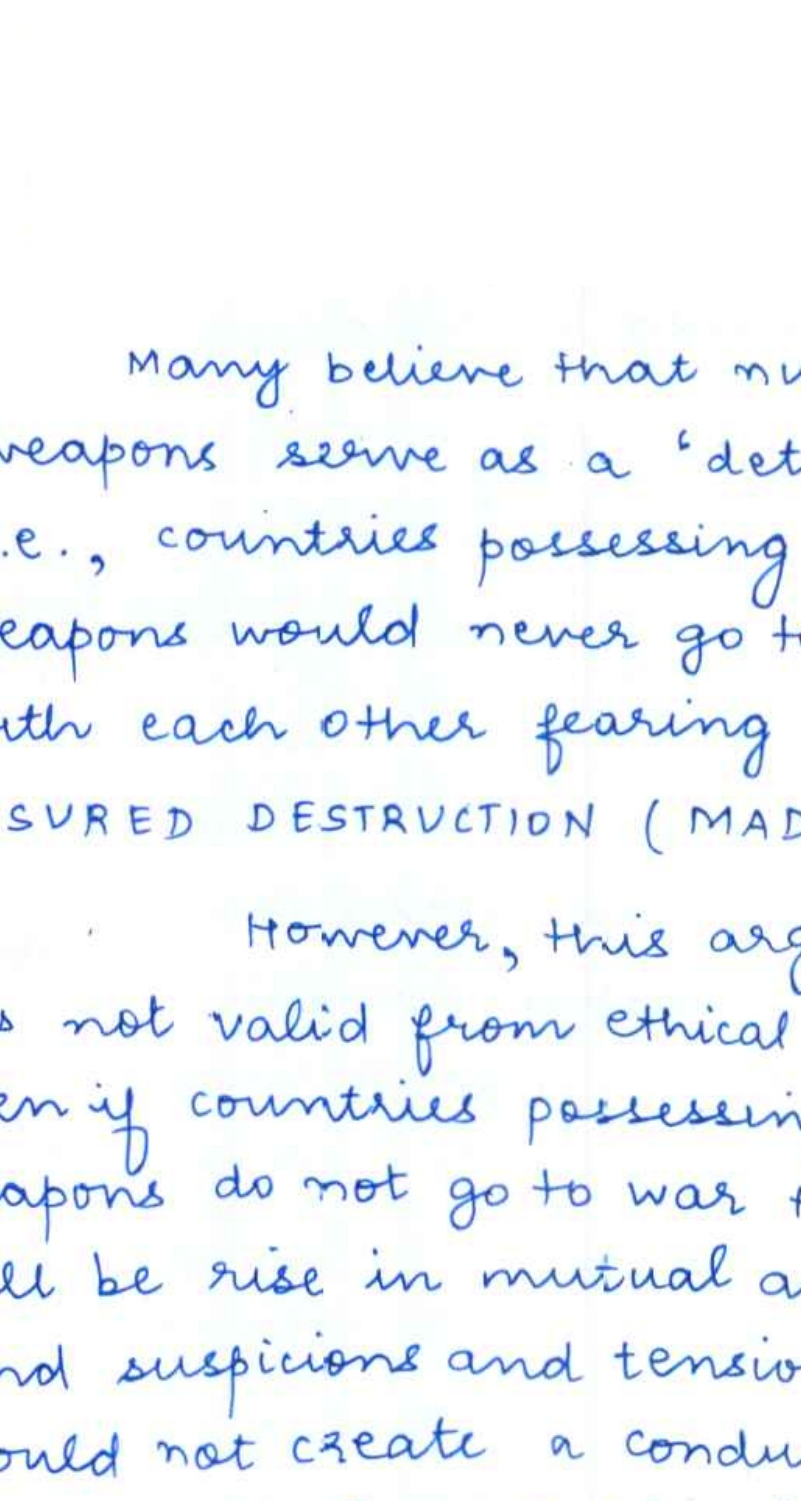 Many believe that nu
weapons serve as a 'det
.e., countries possessing
eapons would never go to
ith each other fearing
SURED DESTRUCTION (MAD
However, this arg
s not valid from ethical
en if countries possessin
apons do not go to war t
ll be rise in mutual a
nd suspicions and tensio
ould not create a condu